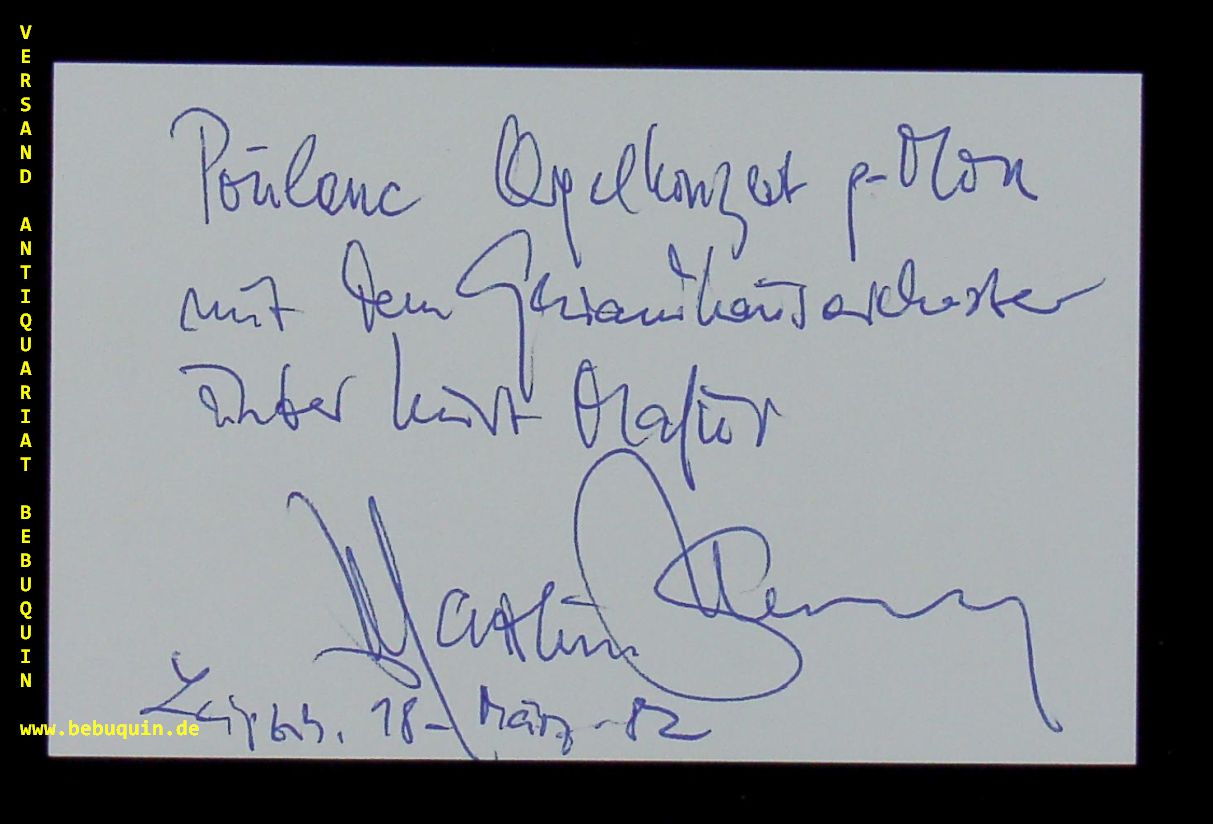 VERSAND ANTIQUARIAT BEBUQUIN
www.bebuquin.de
Poulenc Orgelkonzert g-Moll
mit dem Gewandhausorchester
unter Kurt Masur
Matthias
Leipzig, 18. März 82